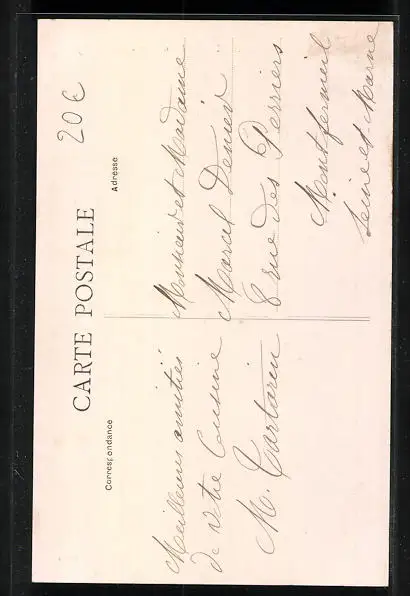 20€
CARTE POSTALE
Correspondance
Meilleures amitiés
de votre Cousine
M. Tartarin
Adresse
Monsieur et Madame
Marcel Denier
8 rue des Perriers
Montfermeil
Seine et Marne